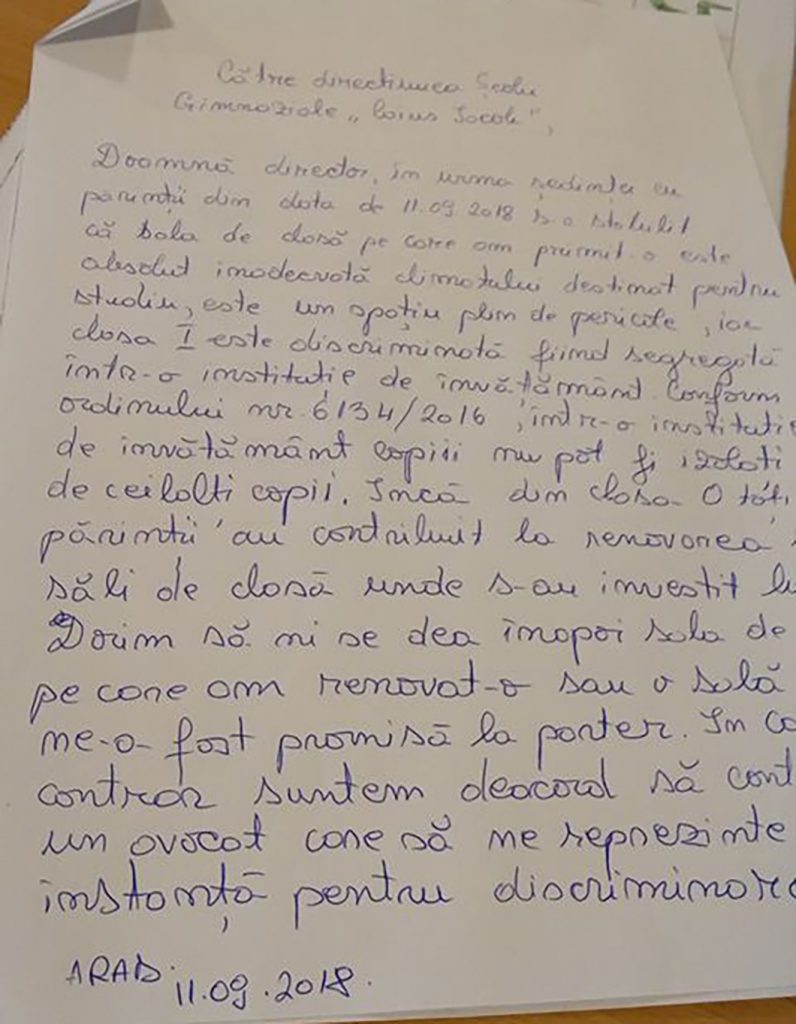 Către directiunea Școlii
Gimnaziale „Caius Iacob”,
Doamnă director, în urma ședința cu
părinții din data de 11.09 2018 s-a stabilit
că sala de clasă pe care am primit-o este
absolut inadecvată climatului destinat pentru
studiu, este un spațiu plin de pericole, iar
clasa I este discriminată fiind segregată
într-o institutie de învățământ. Conform
ordinului nr. 6134/2016, într-o institutie
de învătământ copiii nu pot fi izolati
de ceilalti copii. Incă din clasa O toti
părintii au contribuit la renovarea
săli de clasă unde s-au investit
Dorim să ni se dea înapoi sala de
pe care am renovat-o sau o sală
ne-a fost promisă la parter. In ca
contrar suntem deacord să cont
un avocat care să ne reprezinte
instanță pentru discriminare
ARAD. 11.09.2018.